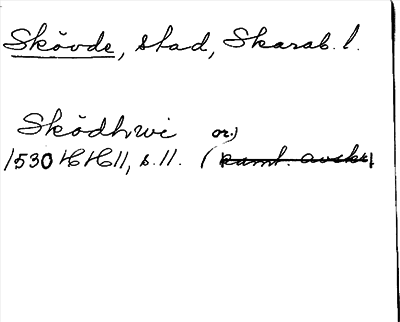 Skövde, stad, Skarab. l.
Sködhwe or.)
1530 HH 11, s. 11. (samt. avskr.